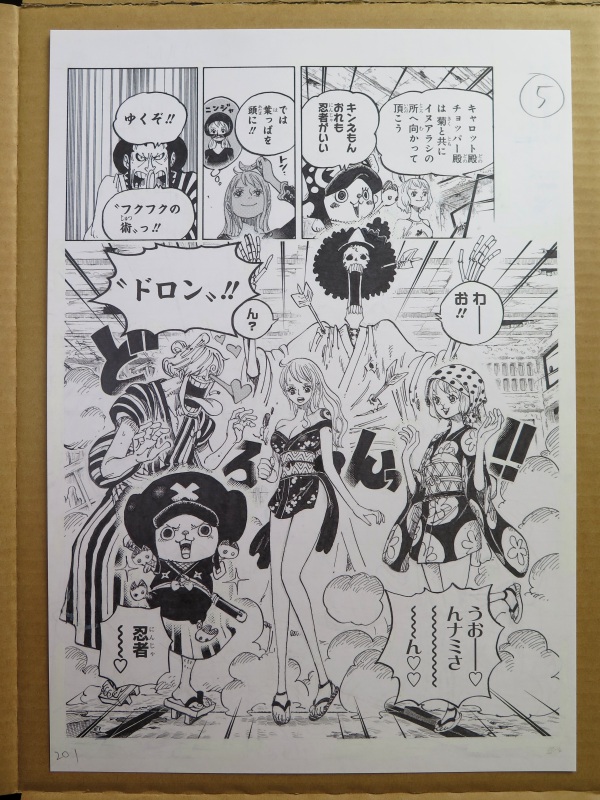 5
キャロット殿
チョッパー殿
は 菊と共に
イヌアラシの
所へ向かって
頂こう
キンえもん
おれも
忍者がいい
では
葉っぱを
頭に!!
トン、
ニンジャ
ゆくぞ!!
〝フクフクの
術〟っ!!
わー
お!!
ん?
〝ドロン〟!!
ど
ろん
!!
うお——
んナミさ
〜〜〜〜ん♡♡
忍者
〜〜♡
201